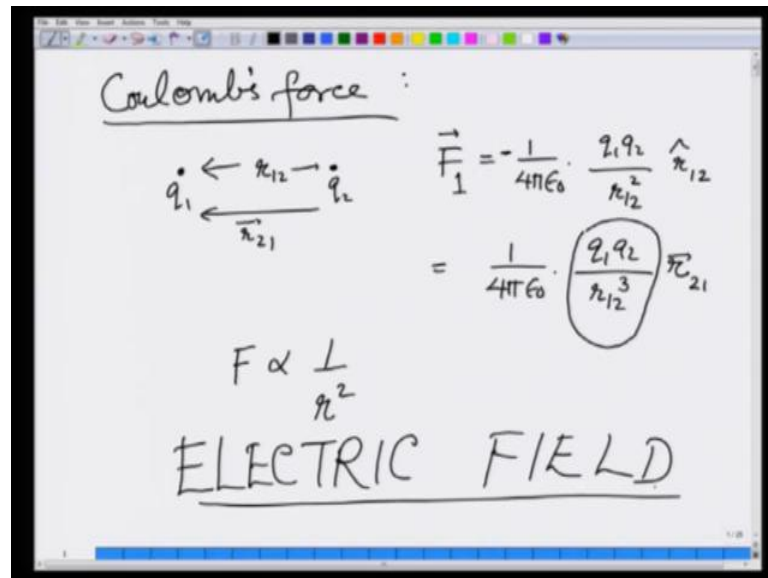 File Edit View Insert Actions Tools Help
Coulomb's force :
q₁ ← r₁₂ → q₂
r⃗₂₁
F⃗₁ = - 1/4πϵ₀ · q₁q₂/r₁₂² r̂₁₂
= 1/4πϵ₀ · q₁q₂/r₁₂³ r⃗₂₁
F ∝ 1/r²
ELECTRIC FIELD
1